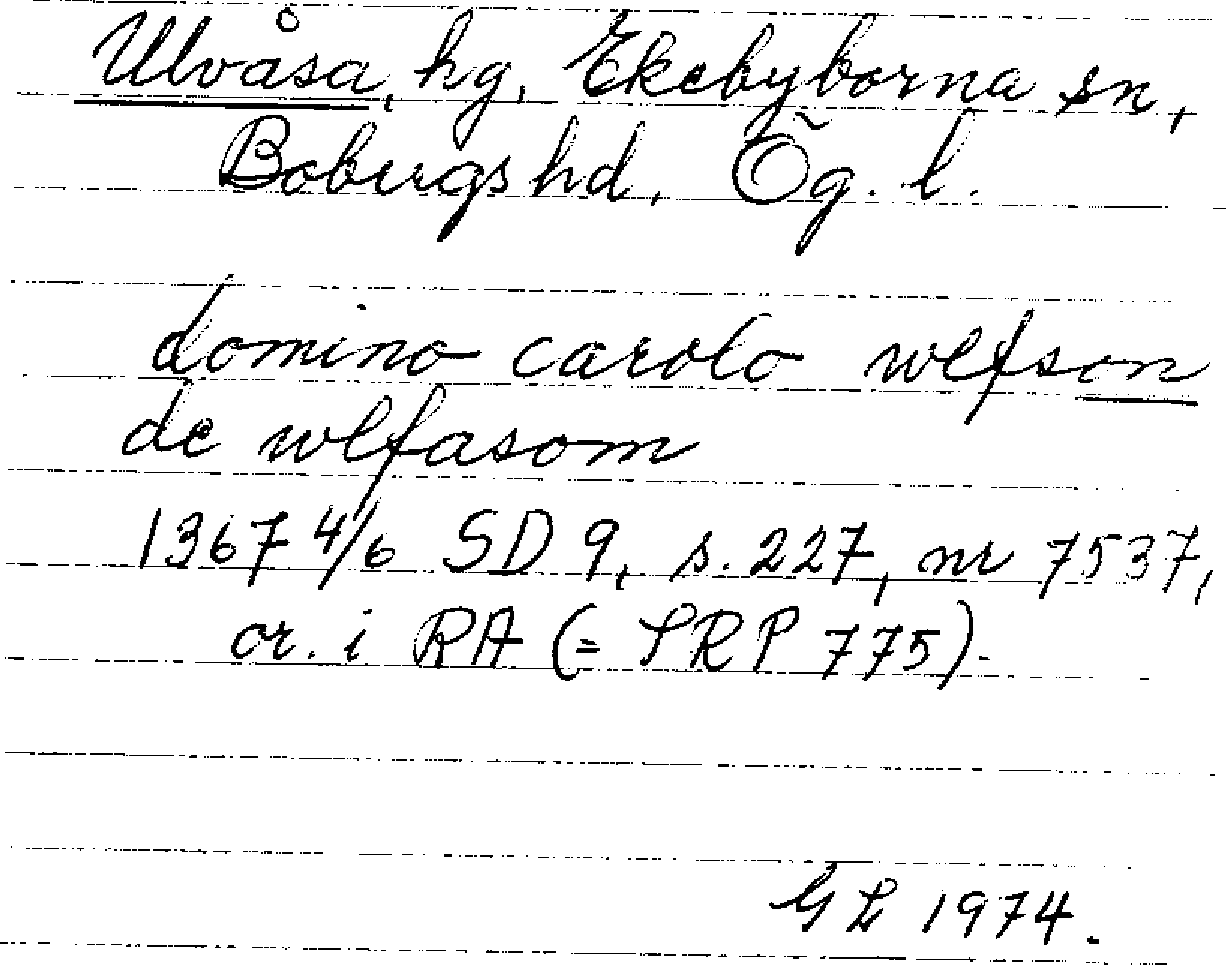 Ulvåsa, hg, Ekebyborna sn,
Bobergs hd, Ög. l.
domino carolo wlfson
de wlfasom
1367 4/6 SD 9, s. 227, nr 7537,
or. i RA (= SRP 775).
GL 1974.